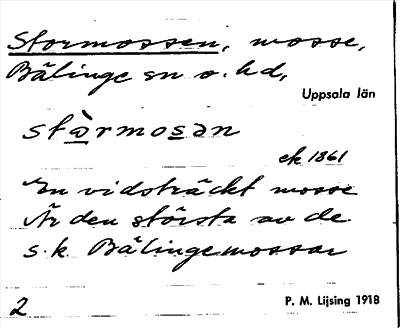 Stormossen, mosse,
Bälinge sn o. hd,
Uppsala län
stàrmosən
ek 1861
En vidsträckt mosse
Är den största av de
s.k. Bälingemossar
2
P. M. Lijsing 1918